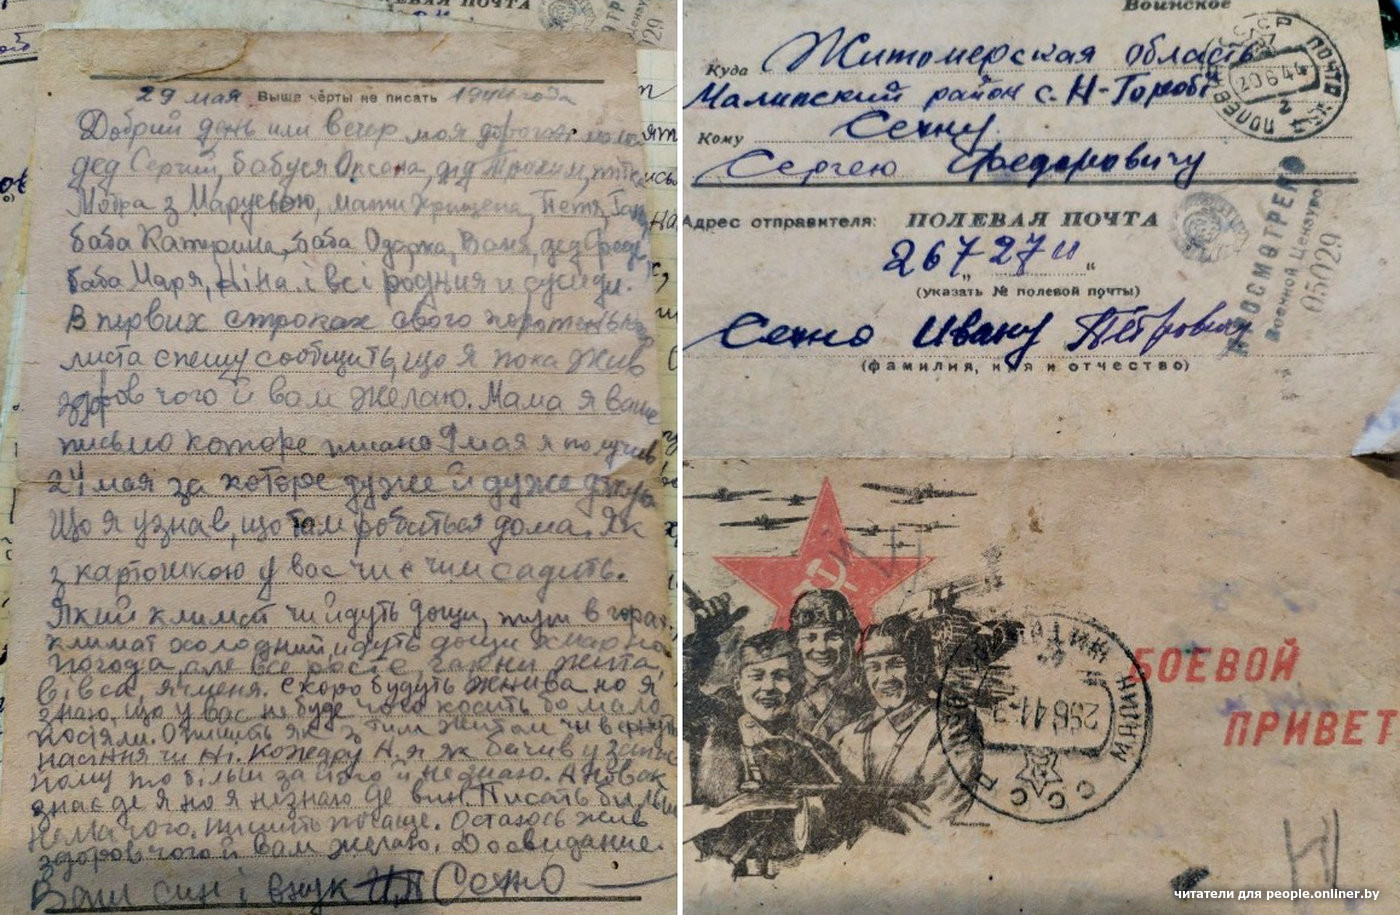 29 мая Выше чёрты не писать 1944 года
Добрий день или вечер моя дорогая
дед Сергий, бабуся Оксана, дід Трохим,
Мотра з Марусьою, мати Христена, Петя,
баба Катерина, баба Одарка, Ваня, дед
баба Маря, Ніна і всі родния и сусиди.
В первих строках свого
листа спешу сообщить, що я пока жив
здоров чого й вам желаю. Мама я ваше
письмо которе писано 9 мая я получив
24 мая за которе дуже й дуже
Що я узнав, що там робиться дома. Як
з картошкою у вас чи є чим садить.
Який климат чи йдуть дощи, тут в горах
климат холодний идуть дощи хмарна
погода, але все росте гарни жита,
вівса, ячменя. Скоро будуть жнива но я
знаю, що у вас не буде чого косить бо мало
посіяли. Опишіть як з тим житом чи
насіння чи ні. Кожедру А. я як бачив у
тому то більш за його й не знаю. А Новак
знає де я но я незнаю де він. Писать більш
нема чого. Пишить почаще. Остаюсь жив
здоров чого й вам желаю. До свидание.
Ваш син і внук И.П Сехно
ЛЕВАЯ ПОЧТА
Воинское
Куда Житомерская область
Малинский район с. Н-Вороби
Кому Сехну
Сергею Федоровичу
Адрес отправителя: ПОЛЕВАЯ ПОЧТА
26727 „ и “
(указать № полевой почты)
Сехно Ивану Пётровичу
(фамилия, имя и отчество)
СССР ПОЛЕВАЯ ПОЧТА
20 6 44
ПРОСМОТРЕНО
Военной Цензурой
05029
БОЕВОЙ
ПРИВЕТ
МАЛИН ЖИТОМ.
СССР
Н
читатели для people.onliner.by